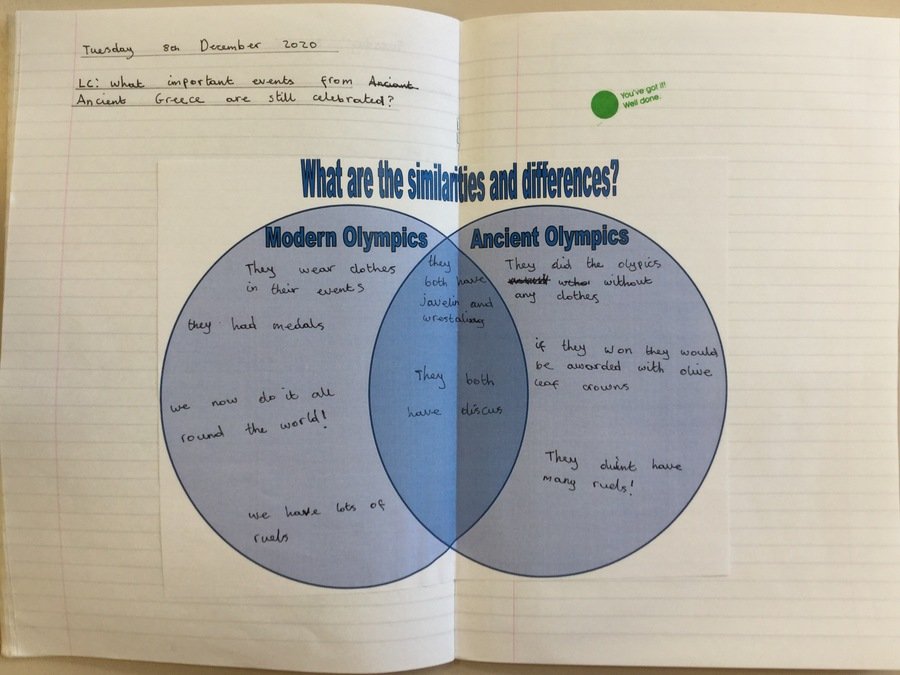 Tuesday 8th December 2020
LC: What important events from Ancient
Ancient Greece are still celebrated?
You've got it!
Well done.
What are the similarities and differences?
Modern Olympics
They wear clothes
in their events
they had medals
we now do it all
round the world!
we have lots of
ruels
they
both have
javelin and
wrestaling
They both
have discus
Ancient Olympics
They did the olypics
without
any clothes
if they won they would
be awarded with olive
leaf crowns
They didn't have
many ruels!